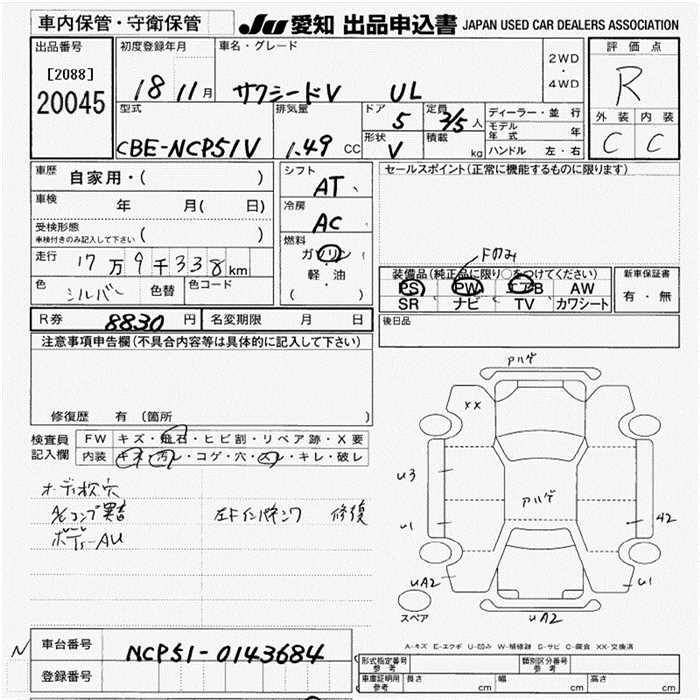 車内保管・守衛保管
JU 愛知 出品申込書 JAPAN USED CAR DEALERS ASSOCIATION
出品番号
[2088]
20045
初度登録年月
18 11月
車名・グレード
サクシードV UL
2WD
・
4WD
評価点
R
外装 内装
C C
型式
CBE-NCP51V
排気量
1.49 CC
ドア
5
定員
2/5人
形状
V
積載
kg
ディーラー・並 行
モデル年式 年
ハンドル 左・右
車歴
自家用・( )
車検
年 月( 日)
受検形態
車検付きのみ記入して下さい ( )
走行
17万9千338km
色
シルバー
色替
色コード
シフト
AT
冷房
AC
燃料
ガソリン
・
軽 油
( )
セールスポイント(正常に機能するものに限ります)
Fのみ
装備品(純正品に限り○をつけてください)
PS PW エアB AW
SR ナビ TV カワシート
新車保証書
有・無
R券 8830円
名変期限 月 日
後日品
注意事項申告欄(不具合内容等は具体的に記入して下さい)
修復歴 有(箇所 )
検査員
記入欄
FW キズ・飛石・ヒビ割・リペア跡・X要
内装 キズ・汚レ・コゲ・穴・スレ・キレ・破レ
オーディオ穴
A/Cコンプ異音
ボディーAU
左Fインパネ 修復
アルゲ
XX
U3
アルゲ
U1
42
UA2
U1
UA2
スペア
A-キズ E-エクボ U-凹み W-補修跡 S-サビ C-腐食 XX-交換済
車台番号
NCP51-0143684
登録番号
N
型式指定番号
参考
類別区分番号
参考
車庫証明用
参考
長さ cm
幅 cm
高さ cm